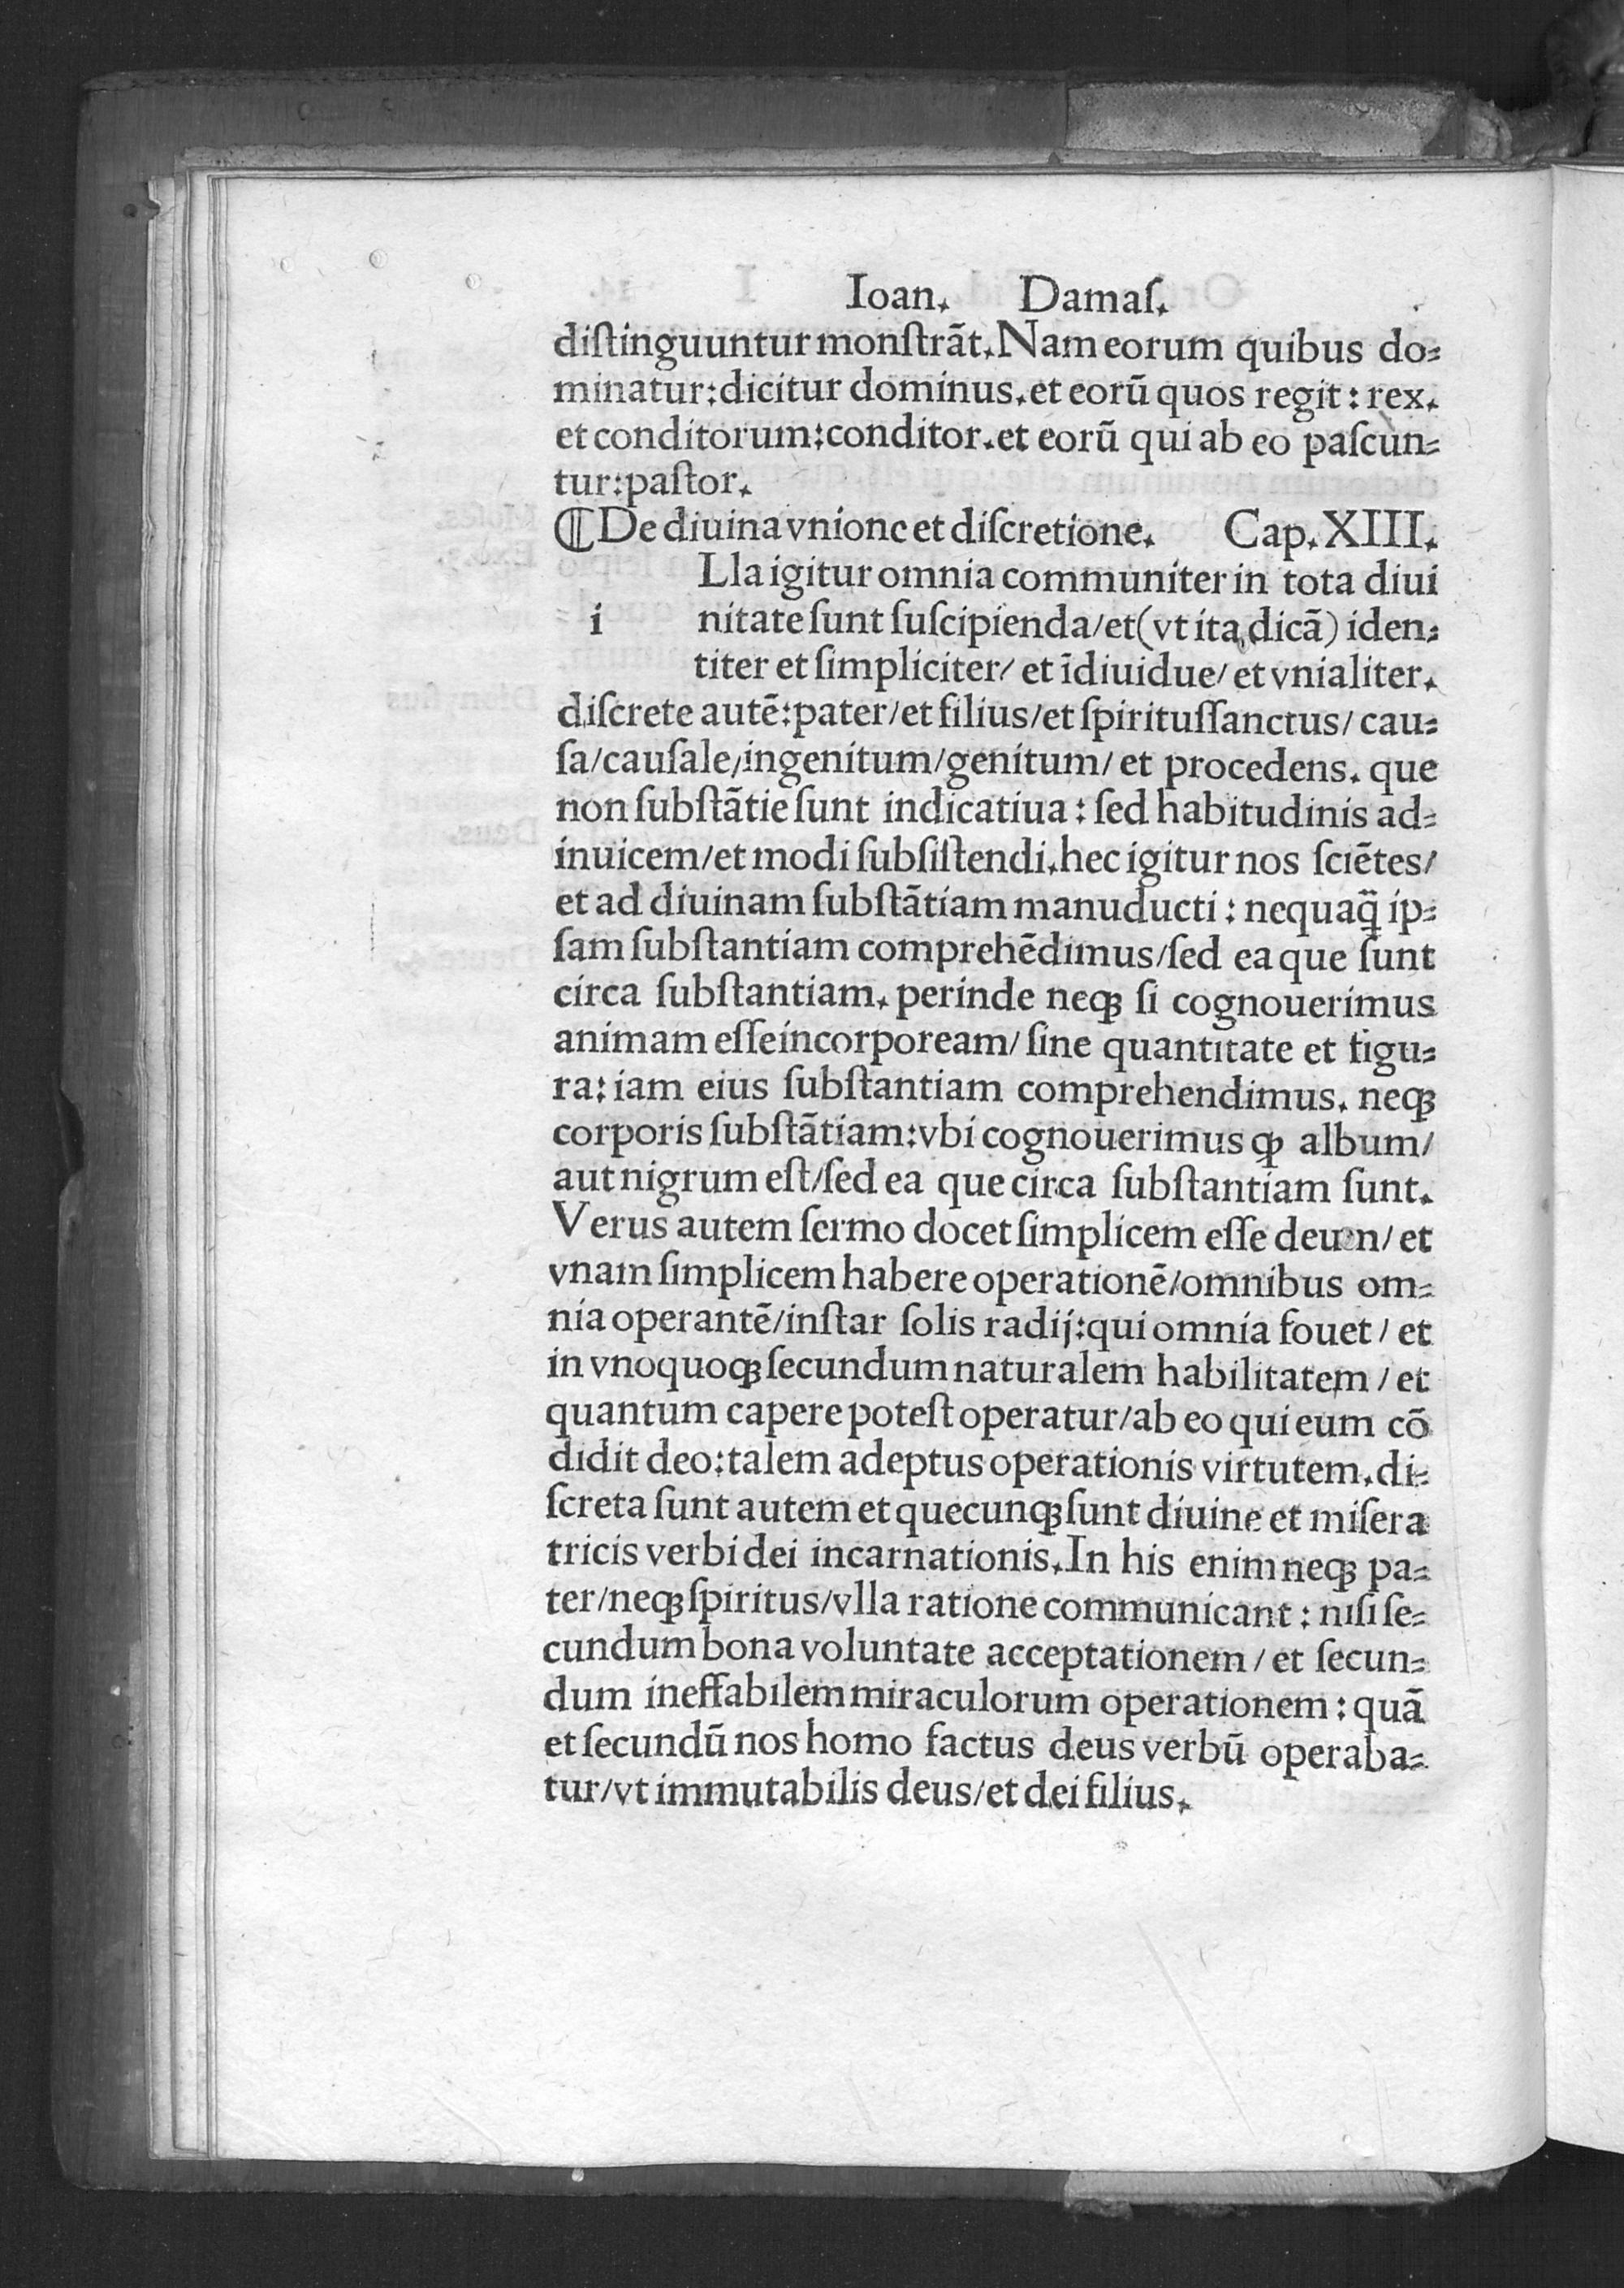 Ioan. Damaſ.
diſtinguuntur monſtrāt. Nam eorum quibus do⸗
minatur: dicitur dominus. et eorū quos regit: rex.
et conditorum: conditor. et eorū qui ab eo paſcun⸗
tur: paſtor.
⸿ De diuina vnione et diſcretione. Cap. XIII.
i Lla igitur omnia communiter in tota diui
nitate ſunt ſuſcipienda/ et (vt ita dicā) iden⸗
titer et ſimpliciter/ et īdiuidue/ et vnialiter.
diſcrete autē: pater/ et filius/ et ſpirituſſanctus/ cau⸗
ſa/ cauſale/ ingenitum/ genitum/ et procedens. que
non ſubſtātie ſunt indicatiua: ſed habitudinis ad⸗
inuicem/ et modi ſubſiſtendi. hec igitur nos ſciētes/
et ad diuinam ſubſtātiam manuducti: nequaq̄ ip⸗
ſam ſubſtantiam comprehēdimus/ ſed ea que ſunt
circa ſubſtantiam. perinde neqꝫ ſi cognouerimus
animam eſſe incorpoream/ ſine quantitate et figu⸗
ra: iam eius ſubſtantiam comprehendimus. neqꝫ
corporis ſubſtātiam: vbi cognouerimus ꝙ album/
aut nigrum eſt/ ſed ea que circa ſubſtantiam ſunt.
Verus autem ſermo docet ſimplicem eſſe deum/ et
vnam ſimplicem habere operationē/ omnibus om⸗
nia operantē/ inſtar ſolis radij: qui omnia fouet/ et
in vnoquoqꝫ ſecundum naturalem habilitatem/ et
quantum capere poteſt operatur/ ab eo qui eum cō
didit deo: talem adeptus operationis virtutem. di⸗
ſcreta ſunt autem et quecunqꝫ ſunt diuine et miſera
tricis verbi dei incarnationis. In his enim neqꝫ pa⸗
ter/ neqꝫ ſpiritus/ vlla ratione communicant: niſi ſe⸗
cundum bona voluntate acceptationem/ et ſecun⸗
dum ineffabilem miraculorum operationem: quā
et ſecundū nos homo factus deus verbū operaba⸗
tur/ vt immutabilis deus/ et dei filius.